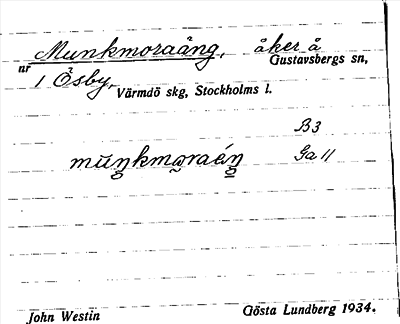 Munkmoraäng, åker å
nr 1 Ösby, Gustavsbergs sn,
Värmdö skg, Stockholms l.
B3
mūŋkmo̰raéŋ Ga 11
John Westin Gösta Lundberg 1934.